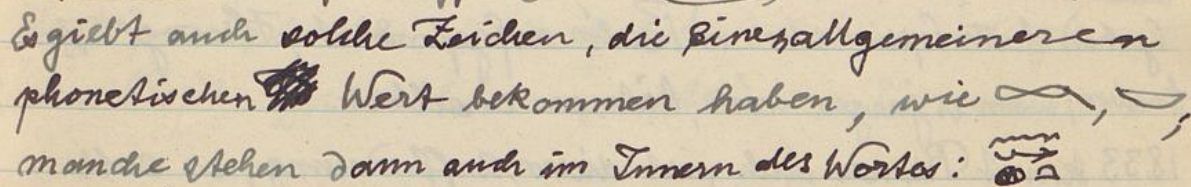 Es giebt auch solche Zeichen, die einen allgemeineren
phonetischen Wert bekommen haben, wie 𓆛, 𓎟,
manche stehen dann auch im Innern des Wortes: